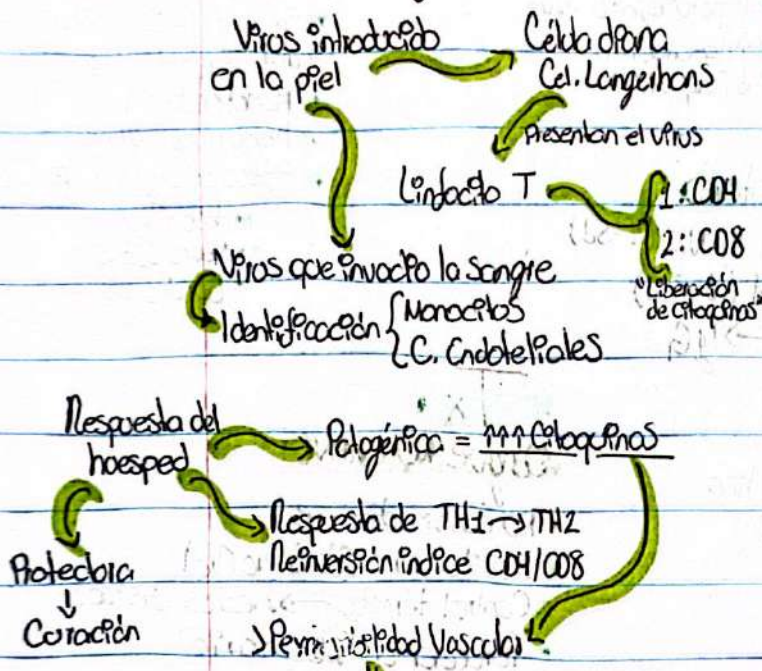 Virus introducido
en la piel
Célula diana
Cel. Langerhans
Presentan el virus
Linfocito T
1: CD4
2: CD8
"Liberación
de Citoquinas"
Virus que invadio la Sangre
Identificación { Monocitos
C. Endoteliales
Respuesta del
huesped
Patogénica = ↑↑↑ Citoquinas
Respuesta de TH1 → TH2
Reinversión índice CD4/CD8
Protectora
↓
Curación
>Permeabilidad Vascular